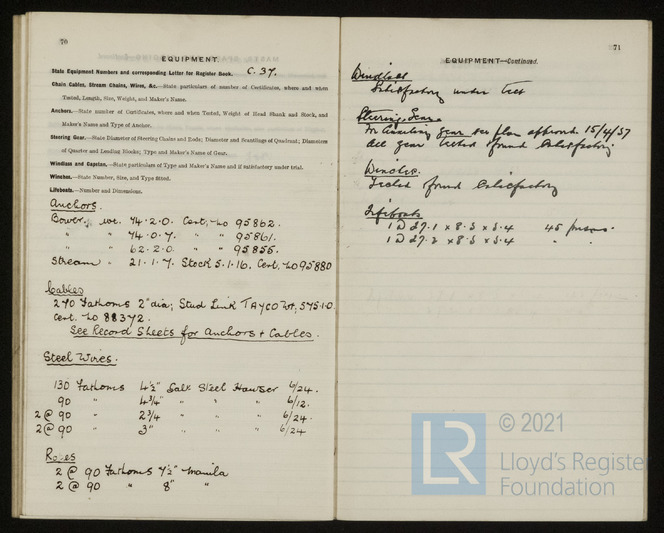 70
EQUIPMENT.
State Equipment Numbers and corresponding Letter for Register Book. C. 37.
Chain Cables, Stream Chains, Wires, &c.—State particulars of number of Certificates, where and when
Tested, Length, Size, Weight, and Maker's Name.
Anchors.—State number of Certificates, where and when Tested, Weight of Head Shank and Stock, and
Maker's Name and Type of Anchor.
Steering Gear.—State Diameter of Steering Chains and Rods; Diameter and Scantlings of Quadrant; Diameters
of Quarter and Leading Blocks; Type and Maker's Name of Gear.
Windlass and Capstan.—State particulars of Type and Maker's Name and if satisfactory under trial.
Winches.—State Number, Size, and Type fitted.
Lifeboats.—Number and Dimensions.
Anchors.
Bower. wt. 74.2.0. Cert. No 95862.
" " 74.0.7. " " 95861.
" " 62.2.0. " 95855.
Stream " 21.1.7. Stock 5.1.16. Cert. No 95880
Cables
270 Fathoms 2" dia; Stud Link TAYCO wt. 575.1.0.
Cert. No 88372.
See Record Sheets for Anchors + Cables.
Steel Wires.
130 Fathoms 4½" Galv Steel Hawser 6/24.
90 " 4¾" " " " 6/12.
2 @ 90 " 2¾ " " " 6/24.
2 @ 90 " 3" " " " 6/24
Ropes
2 @ 90 Fathoms 7½" Manila
2 @ 90 " 8" "
71
EQUIPMENT—Continued.
Windlass
Satisfactory under test
Steering Gear
For Auxiliary gear see plan approved 15/4/37
All gear tested found Satisfactory
Winches.
Tested found Satisfactory
Lifeboats
1 @ 27.1 x 8.5 x 3.4 45 persons.
1 @ 27.2 x 8.5 x 3.4 " "
LR
© 2021
Lloyd's Register
Foundation